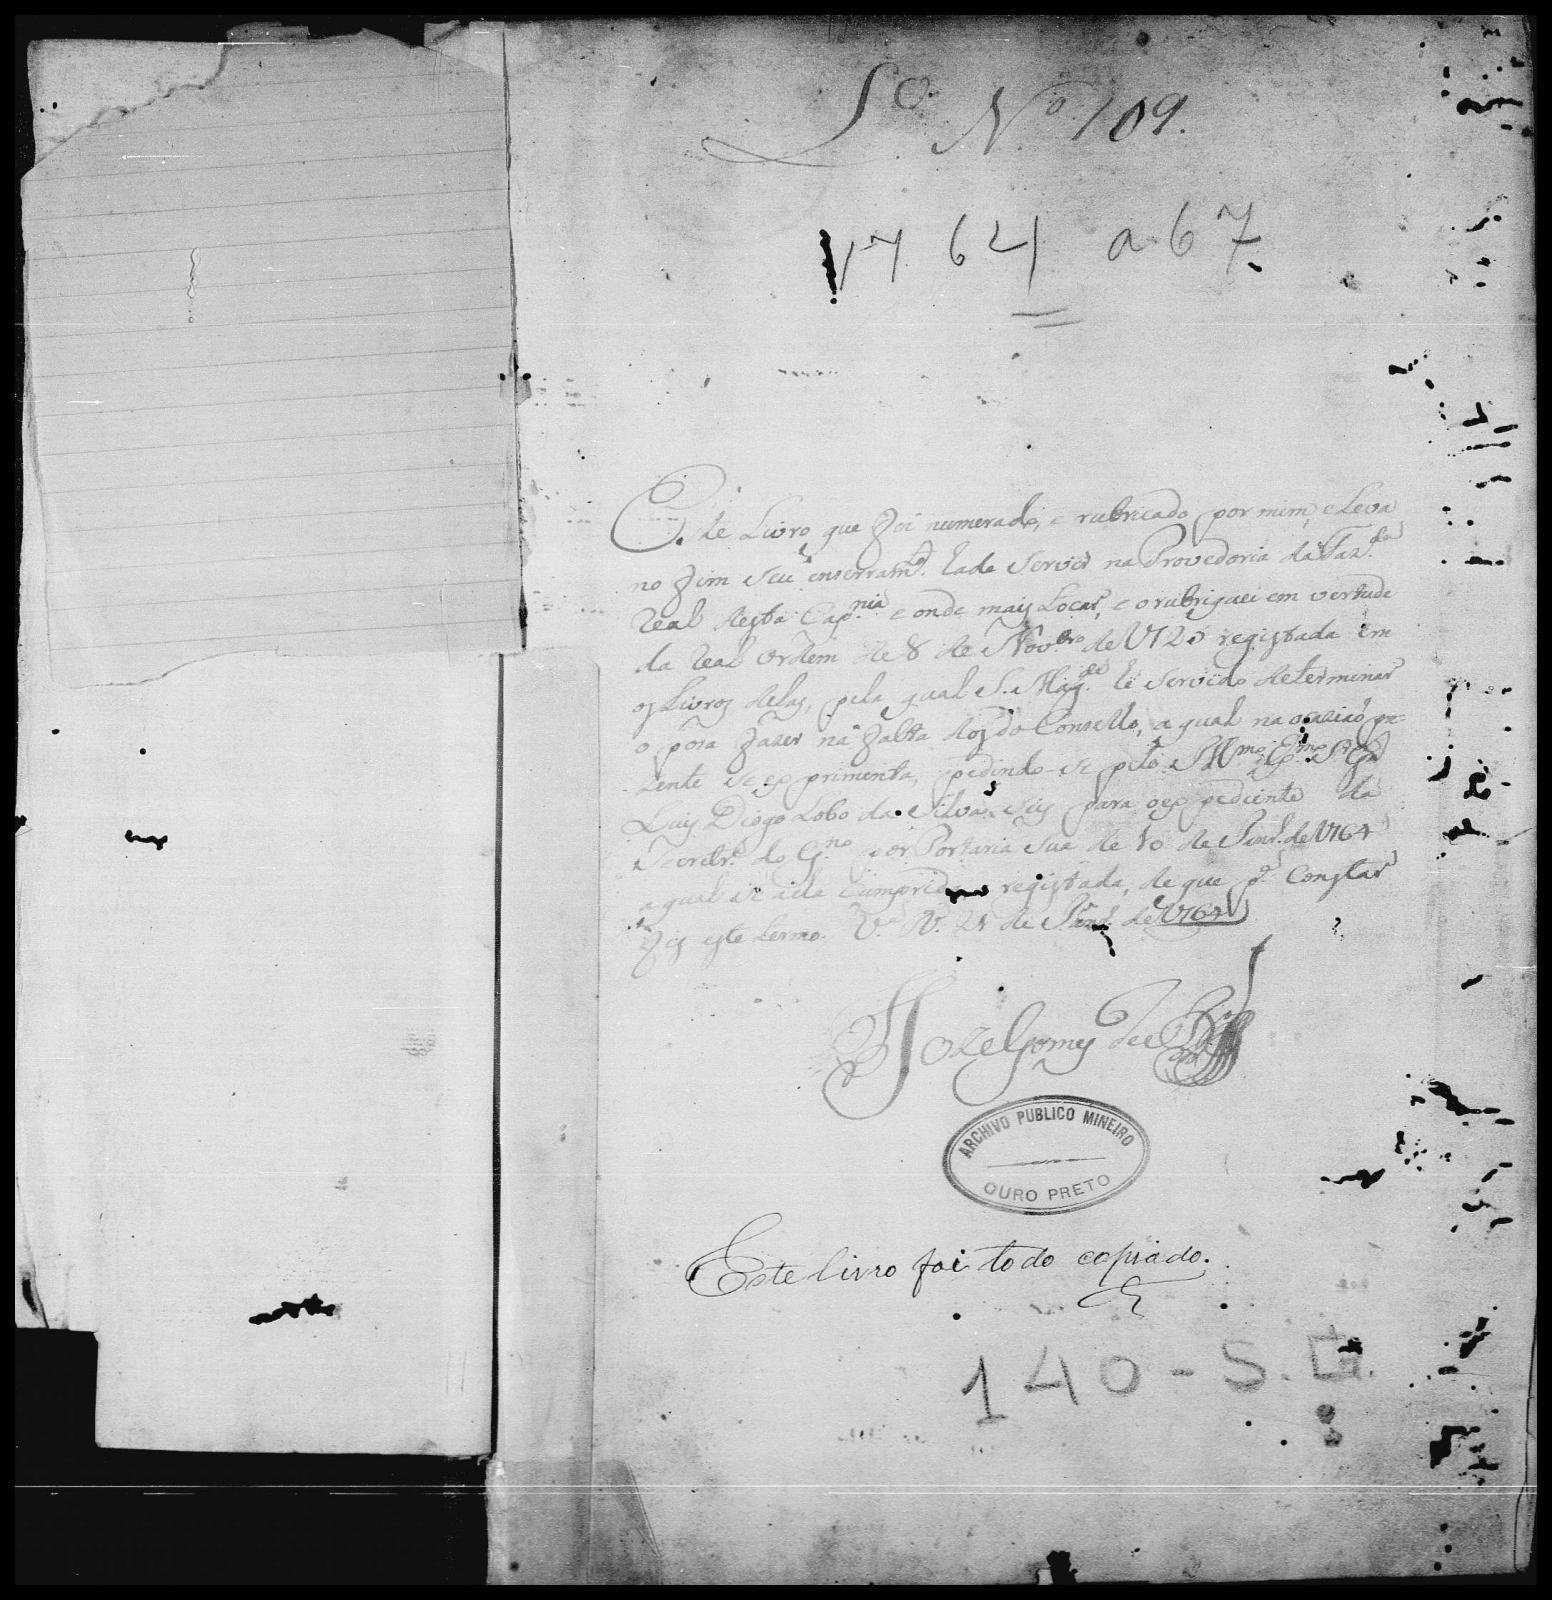 Lo. No. 109.
1764 a 67
Este Livro, que foi numerado, e rubricado por mim, e Leva
no fim seu enserramto. hade servir na Provedoria da Fazda
Real desta Capnia e onde mais tocar, e o rubriquei em vertude
da Real ordem de 8 de Novbro de 1725 registada em
os Livros delas, pela qual S. Magde he servido determinar
o possa fazer na falta dos do Conselho, a qual na ocaziaõ pre-
zente se exprimenta, pedindo-se pelo Illmo. Exmo. Sr. Gal
Luis Diogo Lobo da Silva, seis para o expediente da
Secretr.a do Gno por Portaria sua de 10 de Janro. de 1764
a qual se acha registada, de que pa. Constar
fis este termo. Va. Ra. 21 de Janro. de 1764
Joze Gomes de
ARCHIVO PUBLICO MINEIRO
OURO PRETO
Este livro foi todo copiado.
140 - S. G.